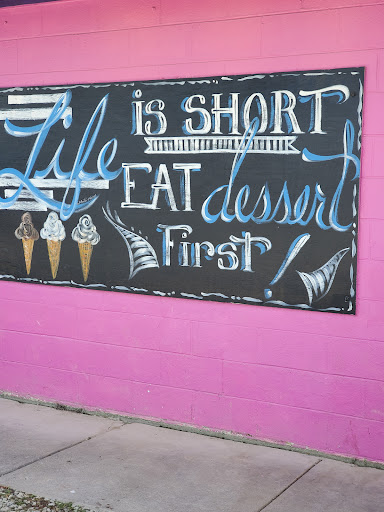 Life is SHORT
EAT dessert
First!